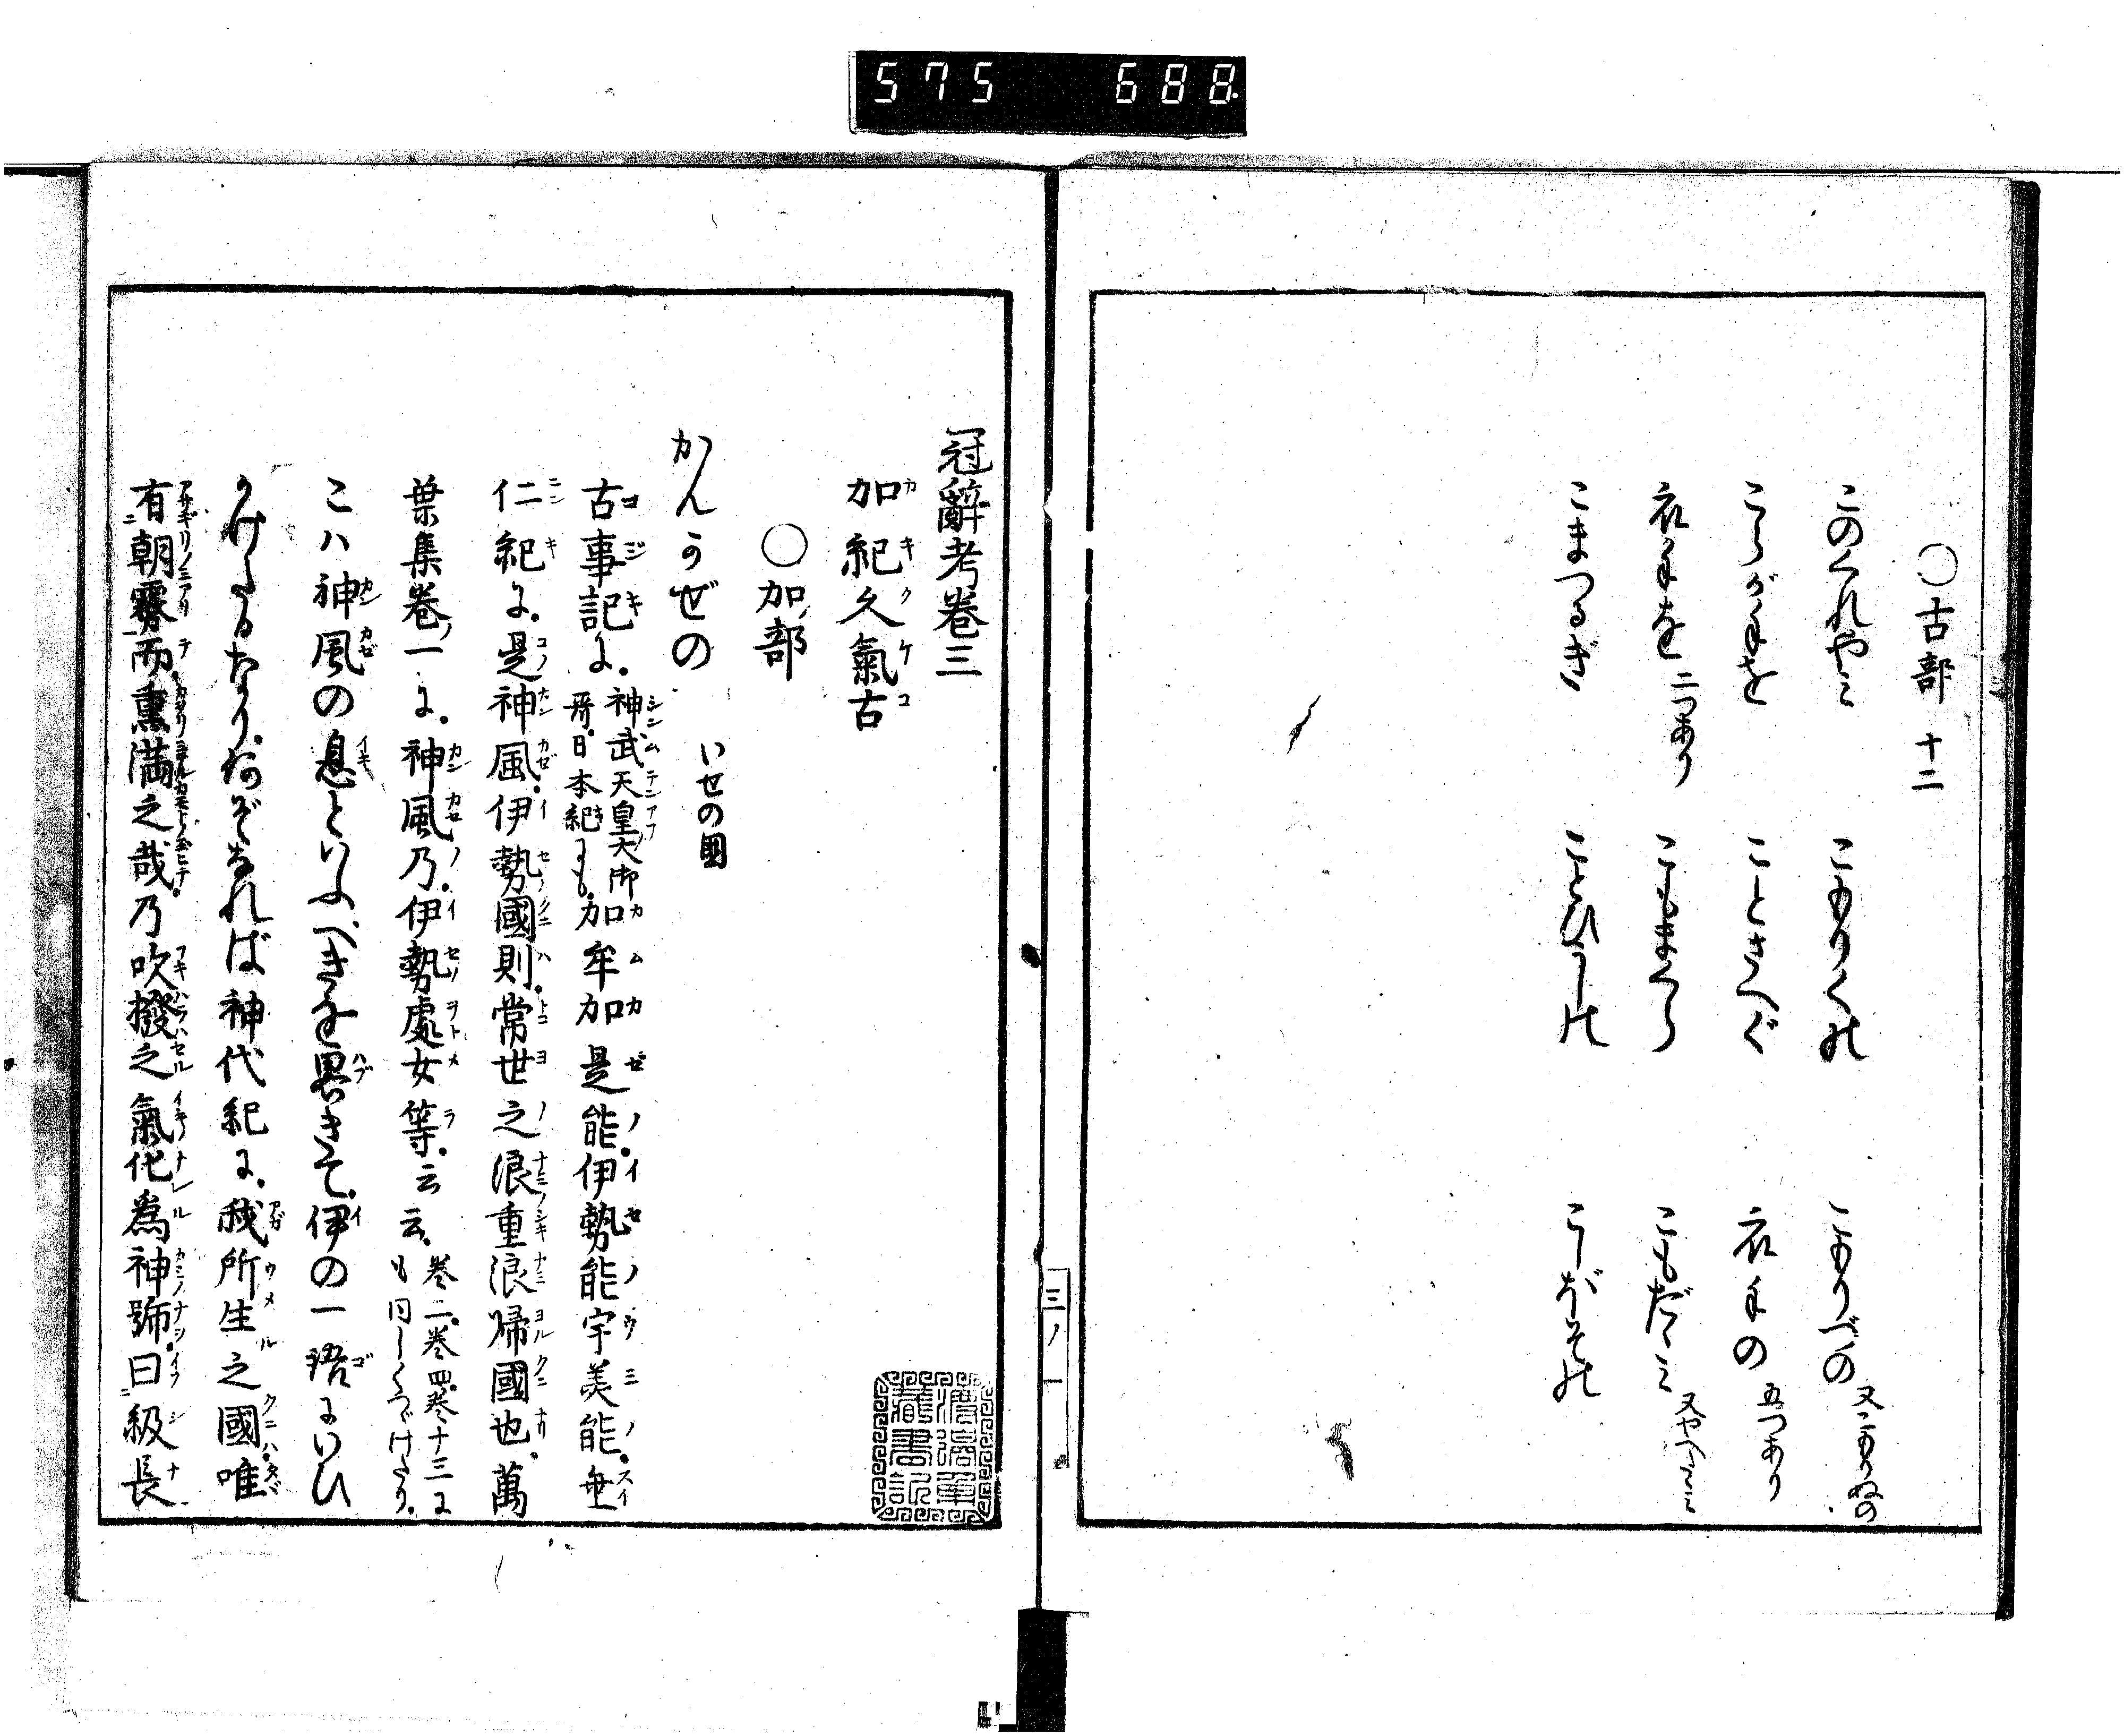 575 688
○古部 十二
このくれやみ こもりくの こもりづの 又こもりぬの
こらが手を ことさへぐ 衣手の 五つあり
衣手を 二つあり こもまくら こもだゝみ 又やへだゝみ
こまつるぎ ことひうしの こうばその
三ノ一
冠辭考卷三
加紀久氣古
○加ノ部
かんかぜの いせの國
古事記に。神武天皇大御哥。日本紀にも。加牟加是能。伊勢能宇美能。垂
仁紀に。是神風。伊勢國則。常世之浪重浪歸國也。萬
葉集卷ノ一に。神風乃。伊勢處女等。云云。卷二。卷四。卷十三にも同しくつゞけたり。
こハ神風の息といふべきを畧きて。伊の一語にいひ
かけたるなり。何ぞなれば神代紀に。我所生之國。唯
有朝霧而。薰滿之哉。乃吹撥之氣化爲神號。曰級長